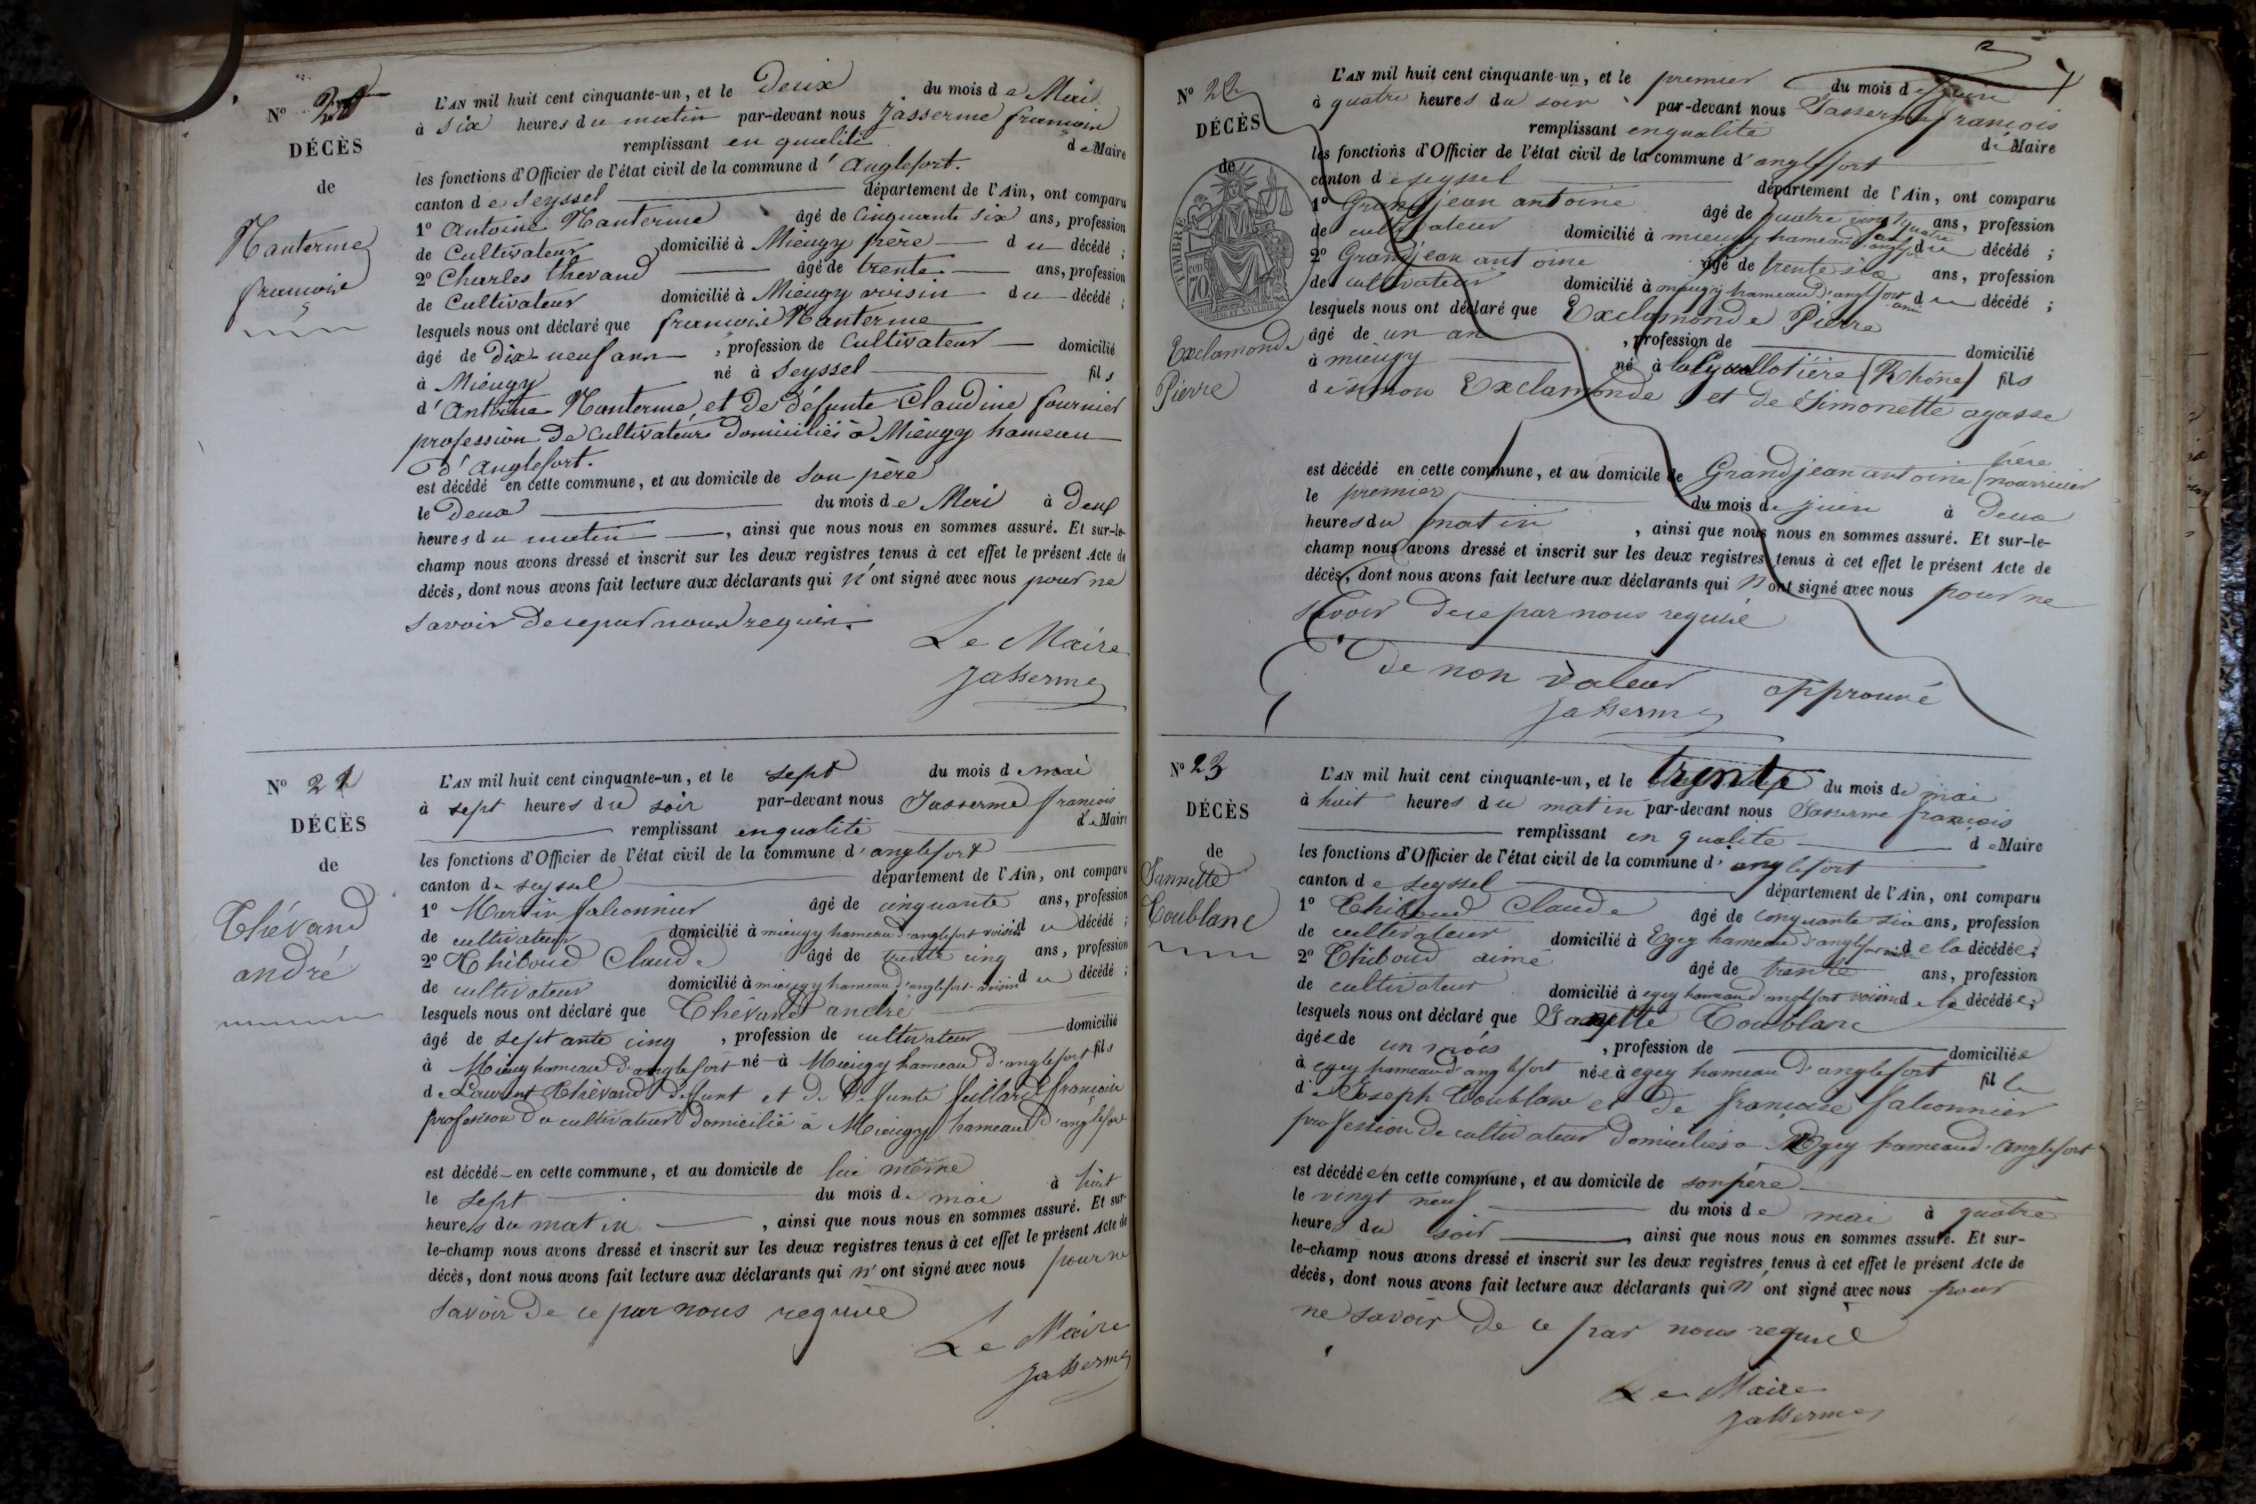 Nº 20
DÉCÈS
de
Nanterme
françois
L'AN mil huit cent cinquante-un, et le Deux du mois de Mai
à six heures du matin par-devant nous Jasserme françois
remplissant en qualité de Maire
les fonctions d'Officier de l'état civil de la commune d'Anglefort.
canton de Seyssel département de l'Ain, ont comparu
1º Antoine Nanterme âgé de Cinquante six ans, profession
de Cultivateur domicilié à Mieugy père du décédé ;
2º Charles thevand âgé de trente ans, profession
de Cultivateur domicilié à Mieugy voisin du décédé ;
lesquels nous ont déclaré que françois Nanterme
âgé de Dix-neuf ans , profession de Cultivateur domicilié
à Miéugy né à Seyssel fils
d'Antoine Nanterme et De défunte Claudine fournier
profession De Cultivateurs Domiciliés à Miéugy hameau
D'Anglefort.
est décédé en cette commune, et au domicile de Son père
le Deux du mois de Mai à Deux
heures du matin , ainsi que nous nous en sommes assuré. Et sur-le-
champ nous avons dressé et inscrit sur les deux registres tenus à cet effet le présent Acte de
décès, dont nous avons fait lecture aux déclarants qui n'ont signé avec nous pour ne
savoir De ce par nous requis.
Le Maire
Jasserme
Nº 21
DÉCÈS
de
Thévand
andré
L'AN mil huit cent cinquante-un, et le sept du mois de mai
à sept heures du soir par-devant nous Jasserme françois
remplissant en qualité de Maire
les fonctions d'Officier de l'état civil de la commune d'anglefort
canton de seyssel département de l'Ain, ont comparu
1º Martin falionnier âgé de cinquante ans, profession
de cultivateur domicilié à mieugy hameau d'anglefort voisin du décédé ;
2º Thiboud Claude âgé de trente cinq ans, profession
de cultivateur domicilié à mieugy hameau d'anglefort voisin du décédé ;
lesquels nous ont déclaré que Thévand andré
âgé de septante cinq , profession de cultivateur domicilié
à Mieugy hameau d'anglefort né à Mieugy hameau d'anglefort fils
de Laurent Thévand Défunt et De Défunte fullard françoise
profession De cultivateur domicilié à Mieugy hameau d'anglefort
est décédé en cette commune, et au domicile de lui même
le sept du mois de mai à huit
heures du matin , ainsi que nous nous en sommes assuré. Et sur-
le-champ nous avons dressé et inscrit sur les deux registres tenus à cet effet le présent Acte de
décès, dont nous avons fait lecture aux déclarants qui n'ont signé avec nous pour ne
savoir De ce par nous requis
Le Maire
Jasserme
Nº 22
DÉCÈS
de
TIMBRE
70
Exclamonde
Pierre
L'AN mil huit cent cinquante-un, et le premier du mois de juin
à quatre heures du soir par-devant nous Jasserme françois
remplissant en qualité de Maire
les fonctions d'Officier de l'état civil de la commune d'anglefort
canton de seyssel département de l'Ain, ont comparu
1º Grandjean antoine âgé de quatre vingt quatre ans, profession
de cultivateur domicilié à mieugy hameau d'anglefort du décédé ;
2º Grandjean antoine âgé de trente six ans, profession
de cultivateur domicilié à mieugy hameau d'anglefort ami du décédé ;
lesquels nous ont déclaré que Exclamonde Pierre
âgé de un an , profession de domicilié
à mieugy né à la Guillotière (Rhône) fils
de Simon Exclamonde et de Simonette agasse
est décédé en cette commune, et au domicile de Grandjean antoine (père nourricier
le premier du mois de juin à Deux
heures du matin , ainsi que nous nous en sommes assuré. Et sur-le-
champ nous avons dressé et inscrit sur les deux registres tenus à cet effet le présent Acte de
décès, dont nous avons fait lecture aux déclarants qui n'ont signé avec nous pour ne
savoir De ce par nous requis
De non valeur approuvé
Jasserme
Nº 23
DÉCÈS
de
Jannette
Coublanc
L'AN mil huit cent cinquante-un, et le trente du mois de mai
à huit heures du matin par-devant nous Jasserme françois
remplissant en qualité de Maire
les fonctions d'Officier de l'état civil de la commune d'anglefort
canton de seyssel département de l'Ain, ont comparu
1º Thiboud Claude âgé de cinquante six ans, profession
de cultivateur domicilié à Egey hameau d'anglefort voisin de la décédée ;
2º Thiboud aimé âgé de trente ans, profession
de cultivateur domicilié à egey hameau d'anglefort voisin de la décédée ;
lesquels nous ont déclaré que Janette Coublanc
âgée de un mois , profession de domiciliée
à egey hameau d'anglefort née à egey hameau d'anglefort fille
de Joseph Coublanc et De françoise falionnier
profession De cultivateur Domiciliés à Egey hameau d'Anglefort
est décédée en cette commune, et au domicile de son père
le vingt neuf du mois de mai à quatre
heures du soir , ainsi que nous nous en sommes assuré. Et sur-
le-champ nous avons dressé et inscrit sur les deux registres tenus à cet effet le présent Acte de
décès, dont nous avons fait lecture aux déclarants qui n'ont signé avec nous pour
ne savoir De ce par nous requis
Le Maire
Jasserme